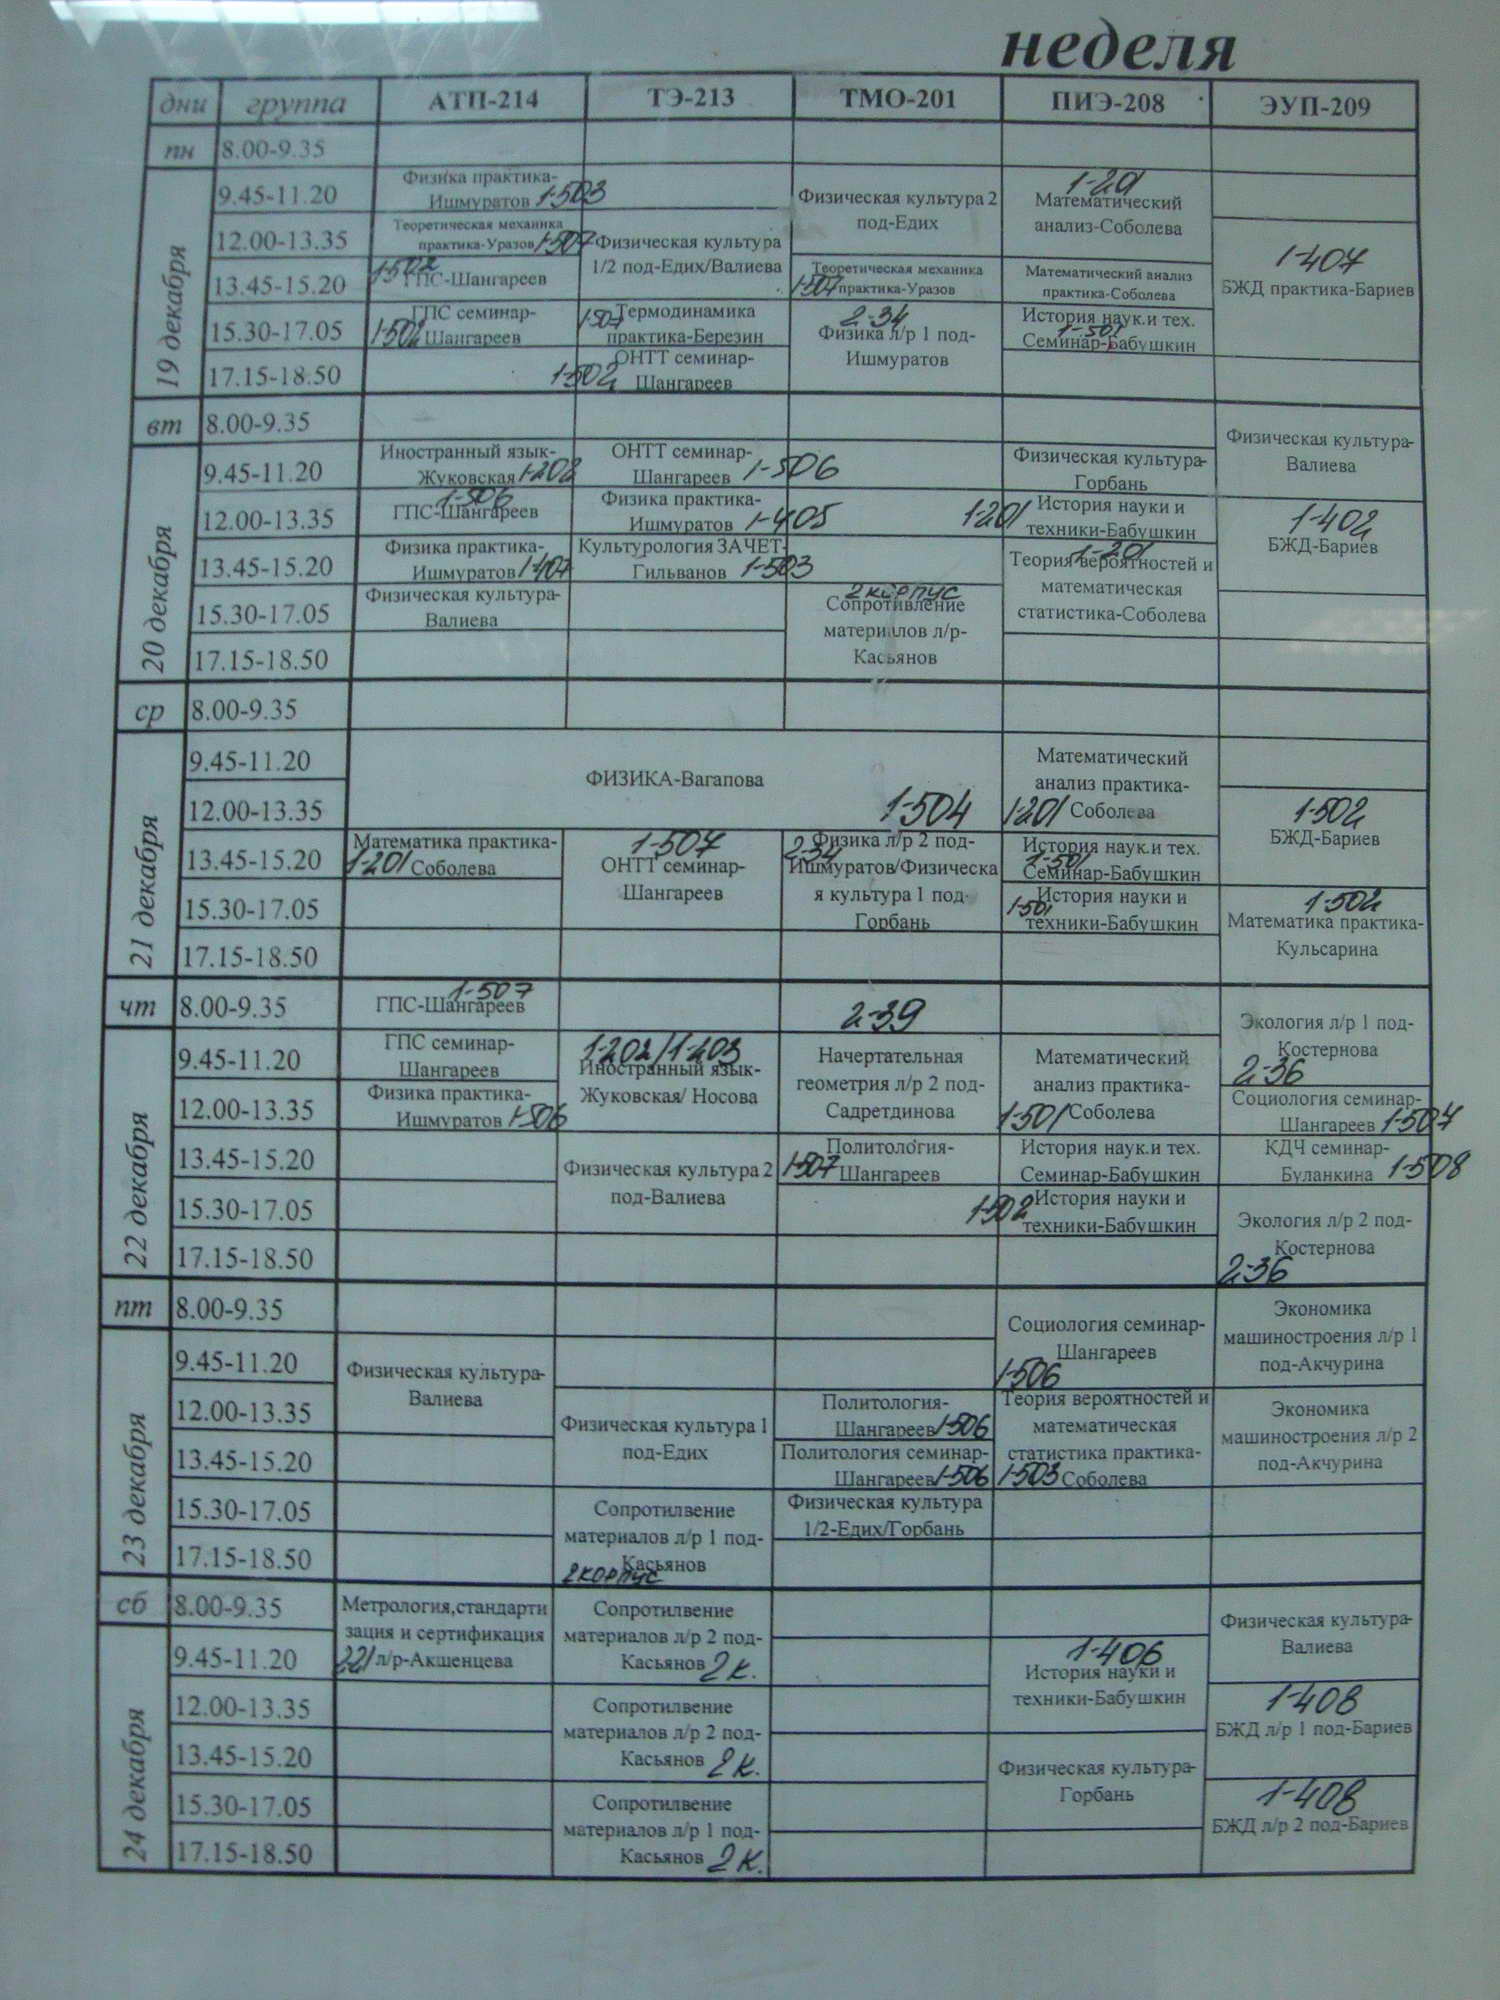 неделя
дни группа АТП-214 ТЭ-213 ТМО-201 ПИЭ-208 ЭУП-209
пн 8.00-9.35
19 декабря
9.45-11.20
Физика практика-
Ишмуратов 1-503
Физическая культура 2
под-Едих
1-201
Математический
анализ-Соболева
12.00-13.35
Теоретическая механика
практика-Уразов 1-507
Физическая культура
1/2 под-Едих/Валиева
1-407
БЖД практика-Бариев
13.45-15.20
1-502
ГПС-Шангареев
Теоретическая механика
1-507 практика-Уразов
Математический анализ
практика-Соболева
15.30-17.05
ГПС семинар-
1-502 Шангареев
1-507 Термодинамика
практика-Березин
2-34
Физика л/р 1 под-
Ишмуратов
История наук.и тех.
1-501
Семинар-Бабушкин
17.15-18.50
ОНТТ семинар-
1-502 Шангареев
вт 8.00-9.35
Физическая культура-
Валиева
20 декабря
9.45-11.20
Иностранный язык-
Жуковская 1-202
ОНТТ семинар-
Шангареев 1-506
Физическая культура-
Горбань
12.00-13.35
1-506
ГПС-Шангареев
Физика практика-
Ишмуратов 1-405
1-201 История науки и
техники-Бабушкин
1-402
БЖД-Бариев
13.45-15.20
Физика практика-
Ишмуратов 1-407
Культурология ЗАЧЕТ-
Гильванов 1-503
1-201
Теория вероятностей и
математическая
статистика-Соболева
15.30-17.05
Физическая культура-
Валиева
2 корпус
Сопротивление
материалов л/р-
Касьянов
17.15-18.50
ср 8.00-9.35
21 декабря
9.45-11.20
ФИЗИКА-Вагапова
1-504
Математический
анализ практика-
1-201 Соболева
12.00-13.35
1-502
БЖД-Бариев
13.45-15.20
Математика практика-
1-201 Соболева
1-507
ОНТТ семинар-
Шангареев
Физика л/р 2 под-
2-34
Ишмуратов/Физическа
я культура 1 под-
Горбань
История наук.и тех.
1-501
Семинар-Бабушкин
15.30-17.05
История науки и
1-501
техники-Бабушкин
1-502
Математика практика-
Кульсарина
17.15-18.50
чт 8.00-9.35
1-507
ГПС-Шангареев
2-39
Экология л/р 1 под-
Костернова
2-36
22 декабря
9.45-11.20
ГПС семинар-
Шангареев
1-202/1-203
Иностранный язык-
Жуковская/ Носова
Начертательная
геометрия л/р 2 под-
Садретдинова
Математический
анализ практика-
1-501 Соболева
12.00-13.35
Физика практика-
Ишмуратов 1-506
Социология семинар-
Шангареев 1-507
13.45-15.20
Физическая культура 2
под-Валиева
Политология-
1-507 Шангареев
История наук.и тех.
Семинар-Бабушкин
КДЧ семинар-
Буланкина 1-508
15.30-17.05
История науки и
1-502
техники-Бабушкин
Экология л/р 2 под-
Костернова
2-36
17.15-18.50
пт 8.00-9.35
Социология семинар-
Шангареев
1-506
Экономика
машиностроения л/р 1
под-Акчурина
23 декабря
9.45-11.20
Физическая культура-
Валиева
12.00-13.35
Физическая культура 1
под-Едих
Политология-
Шангареев 1-506
Теория вероятностей и
математическая
статистика практика-
1-503 Соболева
Экономика
машиностроения л/р 2
под-Акчурина
13.45-15.20
Политология семинар-
Шангареев 1-506
15.30-17.05
Сопротилвение
материалов л/р 1 под-
Касьянов
2 корпус
Физическая культура
1/2-Едих/Горбань
17.15-18.50
сб 8.00-9.35
Метрология,стандарти
зация и сертификация
221 л/р-Акшенцева
Сопротилвение
материалов л/р 2 под-
Касьянов 2 к.
Физическая культура-
Валиева
24 декабря
9.45-11.20
1-406
История науки и
техники-Бабушкин
12.00-13.35
Сопротилвение
материалов л/р 2 под-
Касьянов 2 к.
1-408
БЖД л/р 1 под-Бариев
13.45-15.20
Физическая культура-
Горбань
15.30-17.05
Сопротилвение
материалов л/р 1 под-
Касьянов 2 к.
1-408
БЖД л/р 2 под-Бариев
17.15-18.50